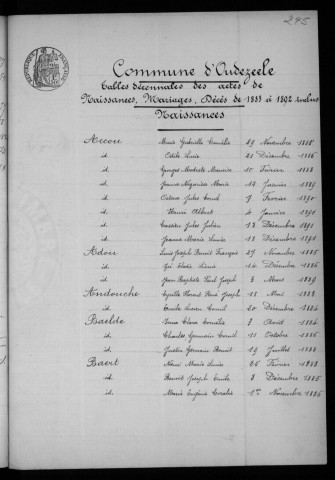 245
Commune d'Oudezeele
Tables décennales des actes de
Naissances, Mariages, Décès de 1883 à 1892 inclus
Naissances
Accou Marie Gabrielle Camille 29 Novembre 1885
id. Odile Lucie 21 Décembre 1886
id. Georges Modeste Maurice 15 Février 1888
id. Jeanne Marie 14 Janvier 1889
id. Octave Jules Cornil 9 Février 1890
id. Henri Albert 4 Janvier 1891
id. Gaston Jules Julien 13 Décembre 1891
id. Jeanne Marie Louise 13 Décembre 1891
Adou Louis Joseph Benoit François 27 Novembre 1885
id. 14 Décembre 1886
id. Jean Baptiste Paul Joseph 3 Mars 1889
Andouche Cyrille Florent René Joseph 15 Mai 1888
id. Emile Lucien Cornil 20 Décembre 1884
Baelde Irma Clara Cornélie 7 Août 1884
id. Charles Germain Cornil 11 Octobre 1885
id. Justin Germain Benoit 19 Juillet 1888
Baert Noémi Marie Louise 26 Février 1883
id. Benoit Joseph Emile 8 Décembre 1885
id. Marie Eugénie Coralie 1er Novembre 1886